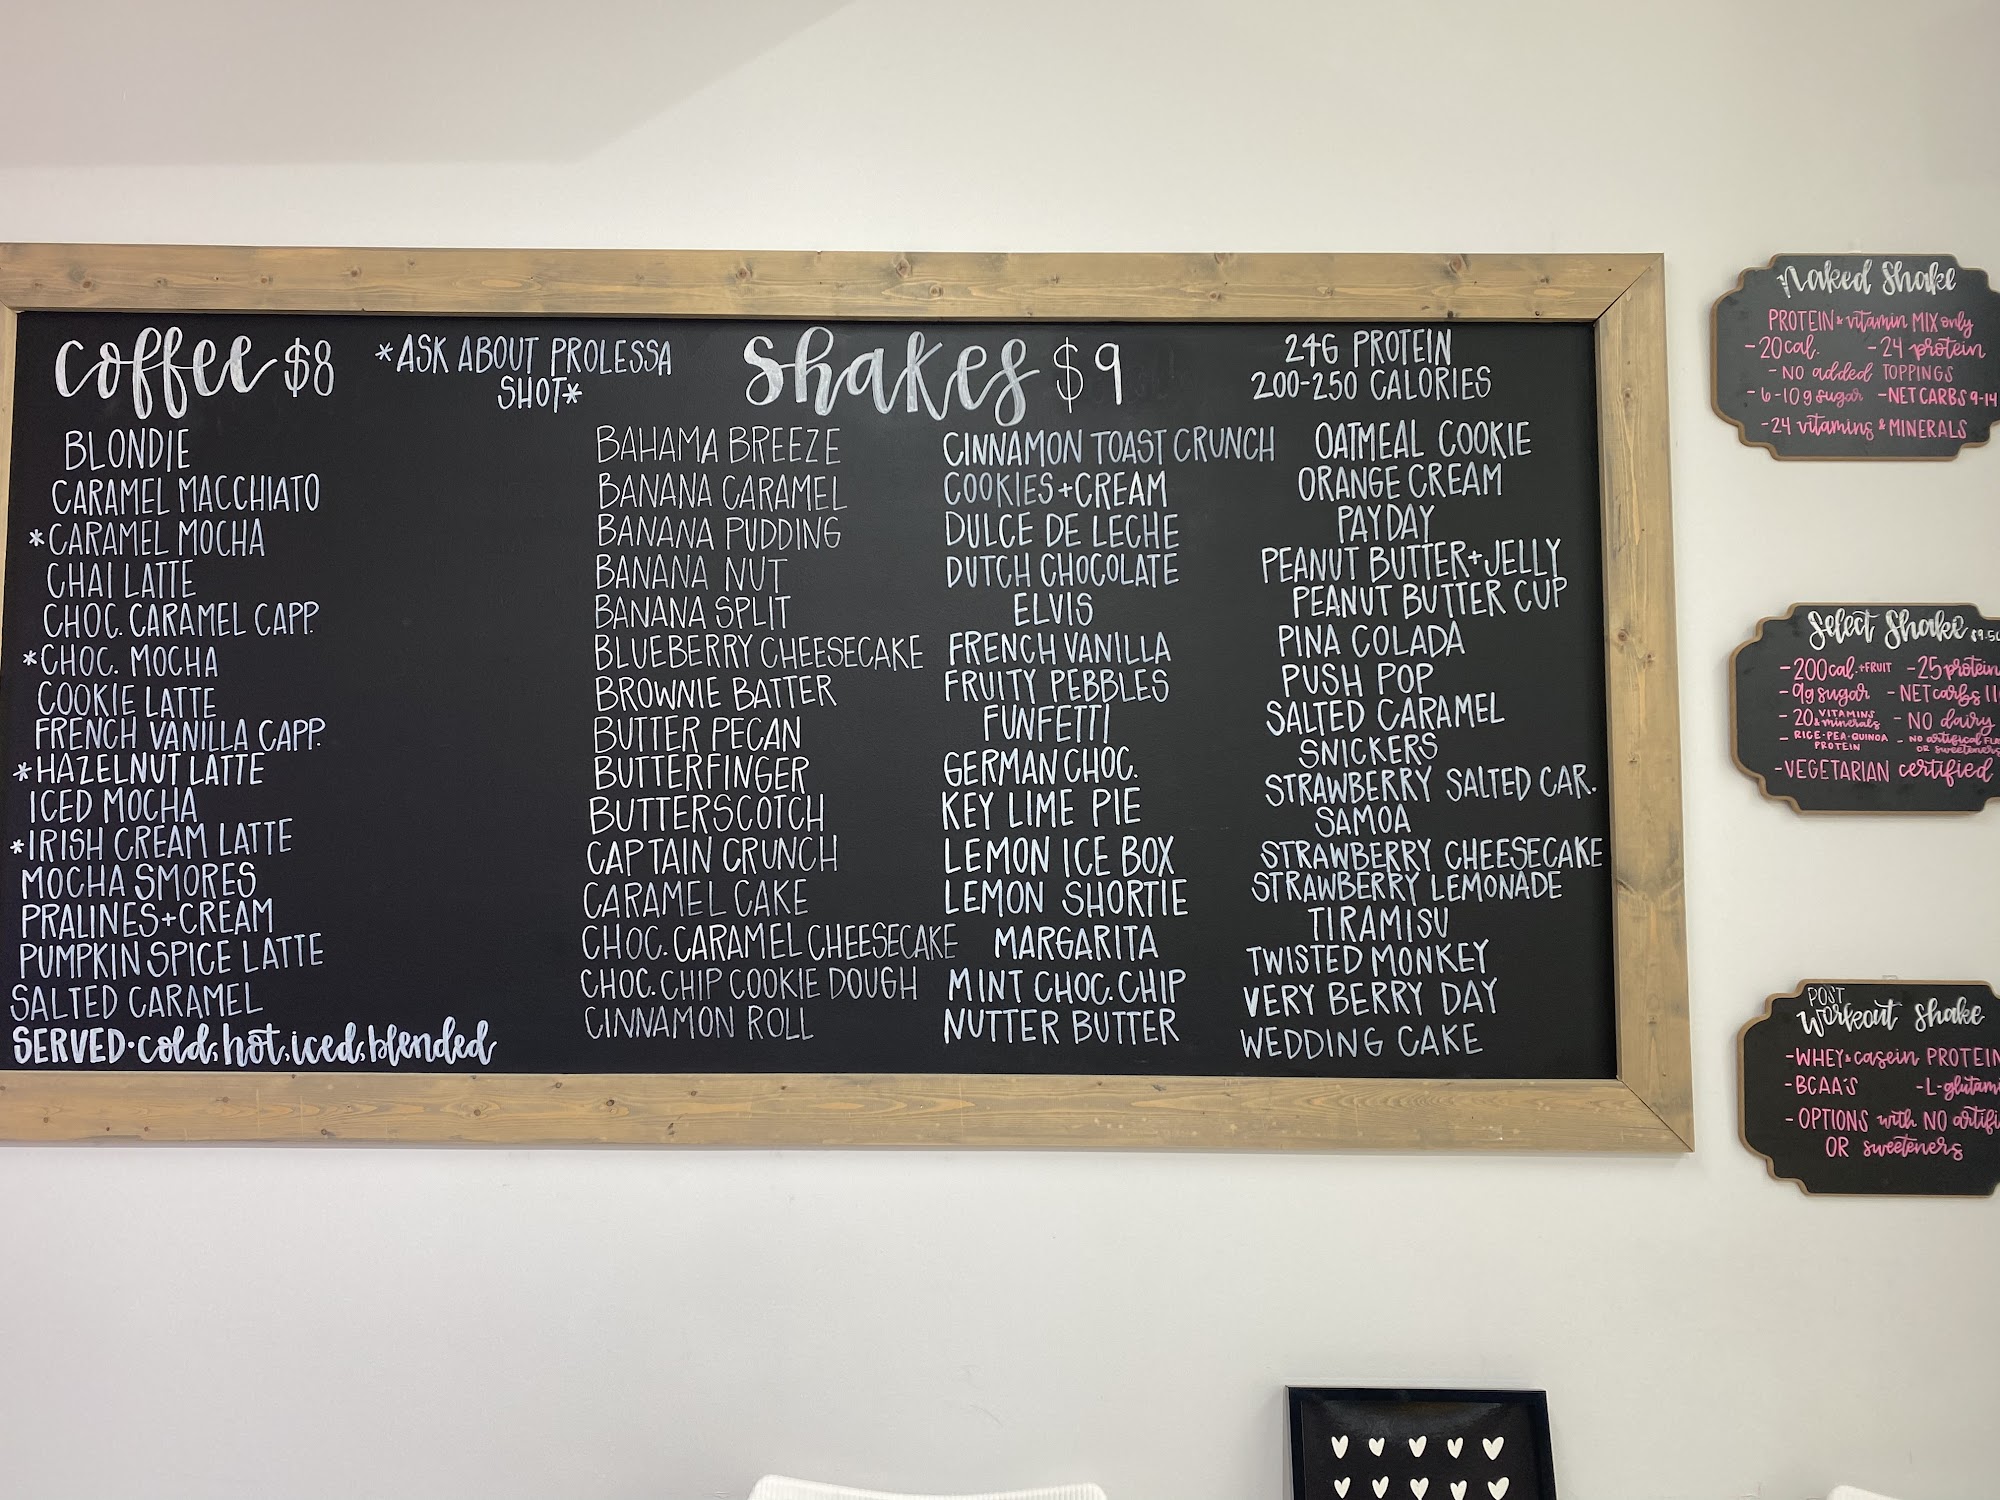 coffee $8
*ASK ABOUT PROLESSA
SHOT*
BLONDIE
CARAMEL MACCHIATO
*CARAMEL MOCHA
CHAI LATTE
CHOC. CARAMEL CAPP.
*CHOC. MOCHA
COOKIE LATTE
FRENCH VANILLA CAPP.
*HAZELNUT LATTE
ICED MOCHA
*IRISH CREAM LATTE
MOCHA SMORES
PRALINES+CREAM
PUMPKIN SPICE LATTE
SALTED CARAMEL
SERVED·cold, hot, iced, blended
shakes $9
24G PROTEIN
200-250 CALORIES
BAHAMA BREEZE
BANANA CARAMEL
BANANA PUDDING
BANANA NUT
BANANA SPLIT
BLUEBERRY CHEESECAKE
BROWNIE BATTER
BUTTER PECAN
BUTTERFINGER
BUTTERSCOTCH
CAPTAIN CRUNCH
CARAMEL CAKE
CHOC. CARAMEL CHEESECAKE
CHOC. CHIP COOKIE DOUGH
CINNAMON ROLL
CINNAMON TOAST CRUNCH
COOKIES+CREAM
DULCE DE LECHE
DUTCH CHOCOLATE
ELVIS
FRENCH VANILLA
FRUITY PEBBLES
FUNFETTI
GERMAN CHOC.
KEY LIME PIE
LEMON ICE BOX
LEMON SHORTIE
MARGARITA
MINT CHOC. CHIP
NUTTER BUTTER
OATMEAL COOKIE
ORANGE CREAM
PAYDAY
PEANUT BUTTER+JELLY
PEANUT BUTTER CUP
PINA COLADA
PUSH POP
SALTED CARAMEL
SNICKERS
STRAWBERRY SALTED CAR.
SAMOA
STRAWBERRY CHEESECAKE
STRAWBERRY LEMONADE
TIRAMISU
TWISTED MONKEY
VERY BERRY DAY
WEDDING CAKE
Naked Shake
PROTEIN & vitamin MIX only
-20cal. -24 protein
-NO added TOPPINGS
-6-10g sugar -NET CARBS 9-14
-24 vitamins & MINERALS
Select Shake $9.50
-200cal.+FRUIT -25 protein
-9g sugar -NET carbs 11
-20 VITAMINS & minerals -NO dairy
-RICE·PEA·QUINOA PROTEIN -NO artifical
OR sweeteners
-VEGETARIAN certified
POST
Workout Shake
-WHEY & casein PROTEIN
-BCAA'S -L-glutam
-OPTIONS with NO artifi
OR sweeteners